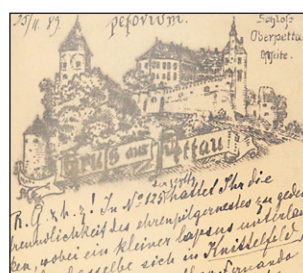 15/11. 89
petovium.
Schloß
Oberpettau
Ostseite.
Gruß aus Pettau
R. G. z. h. z! In № 125 hattet Ihr die
Freundlichkeit des ehrenpilgernestes zu geden
ken, wobei ein kleiner lapsus unterlau
dasselbe sich in Knittelfeld
Fernando